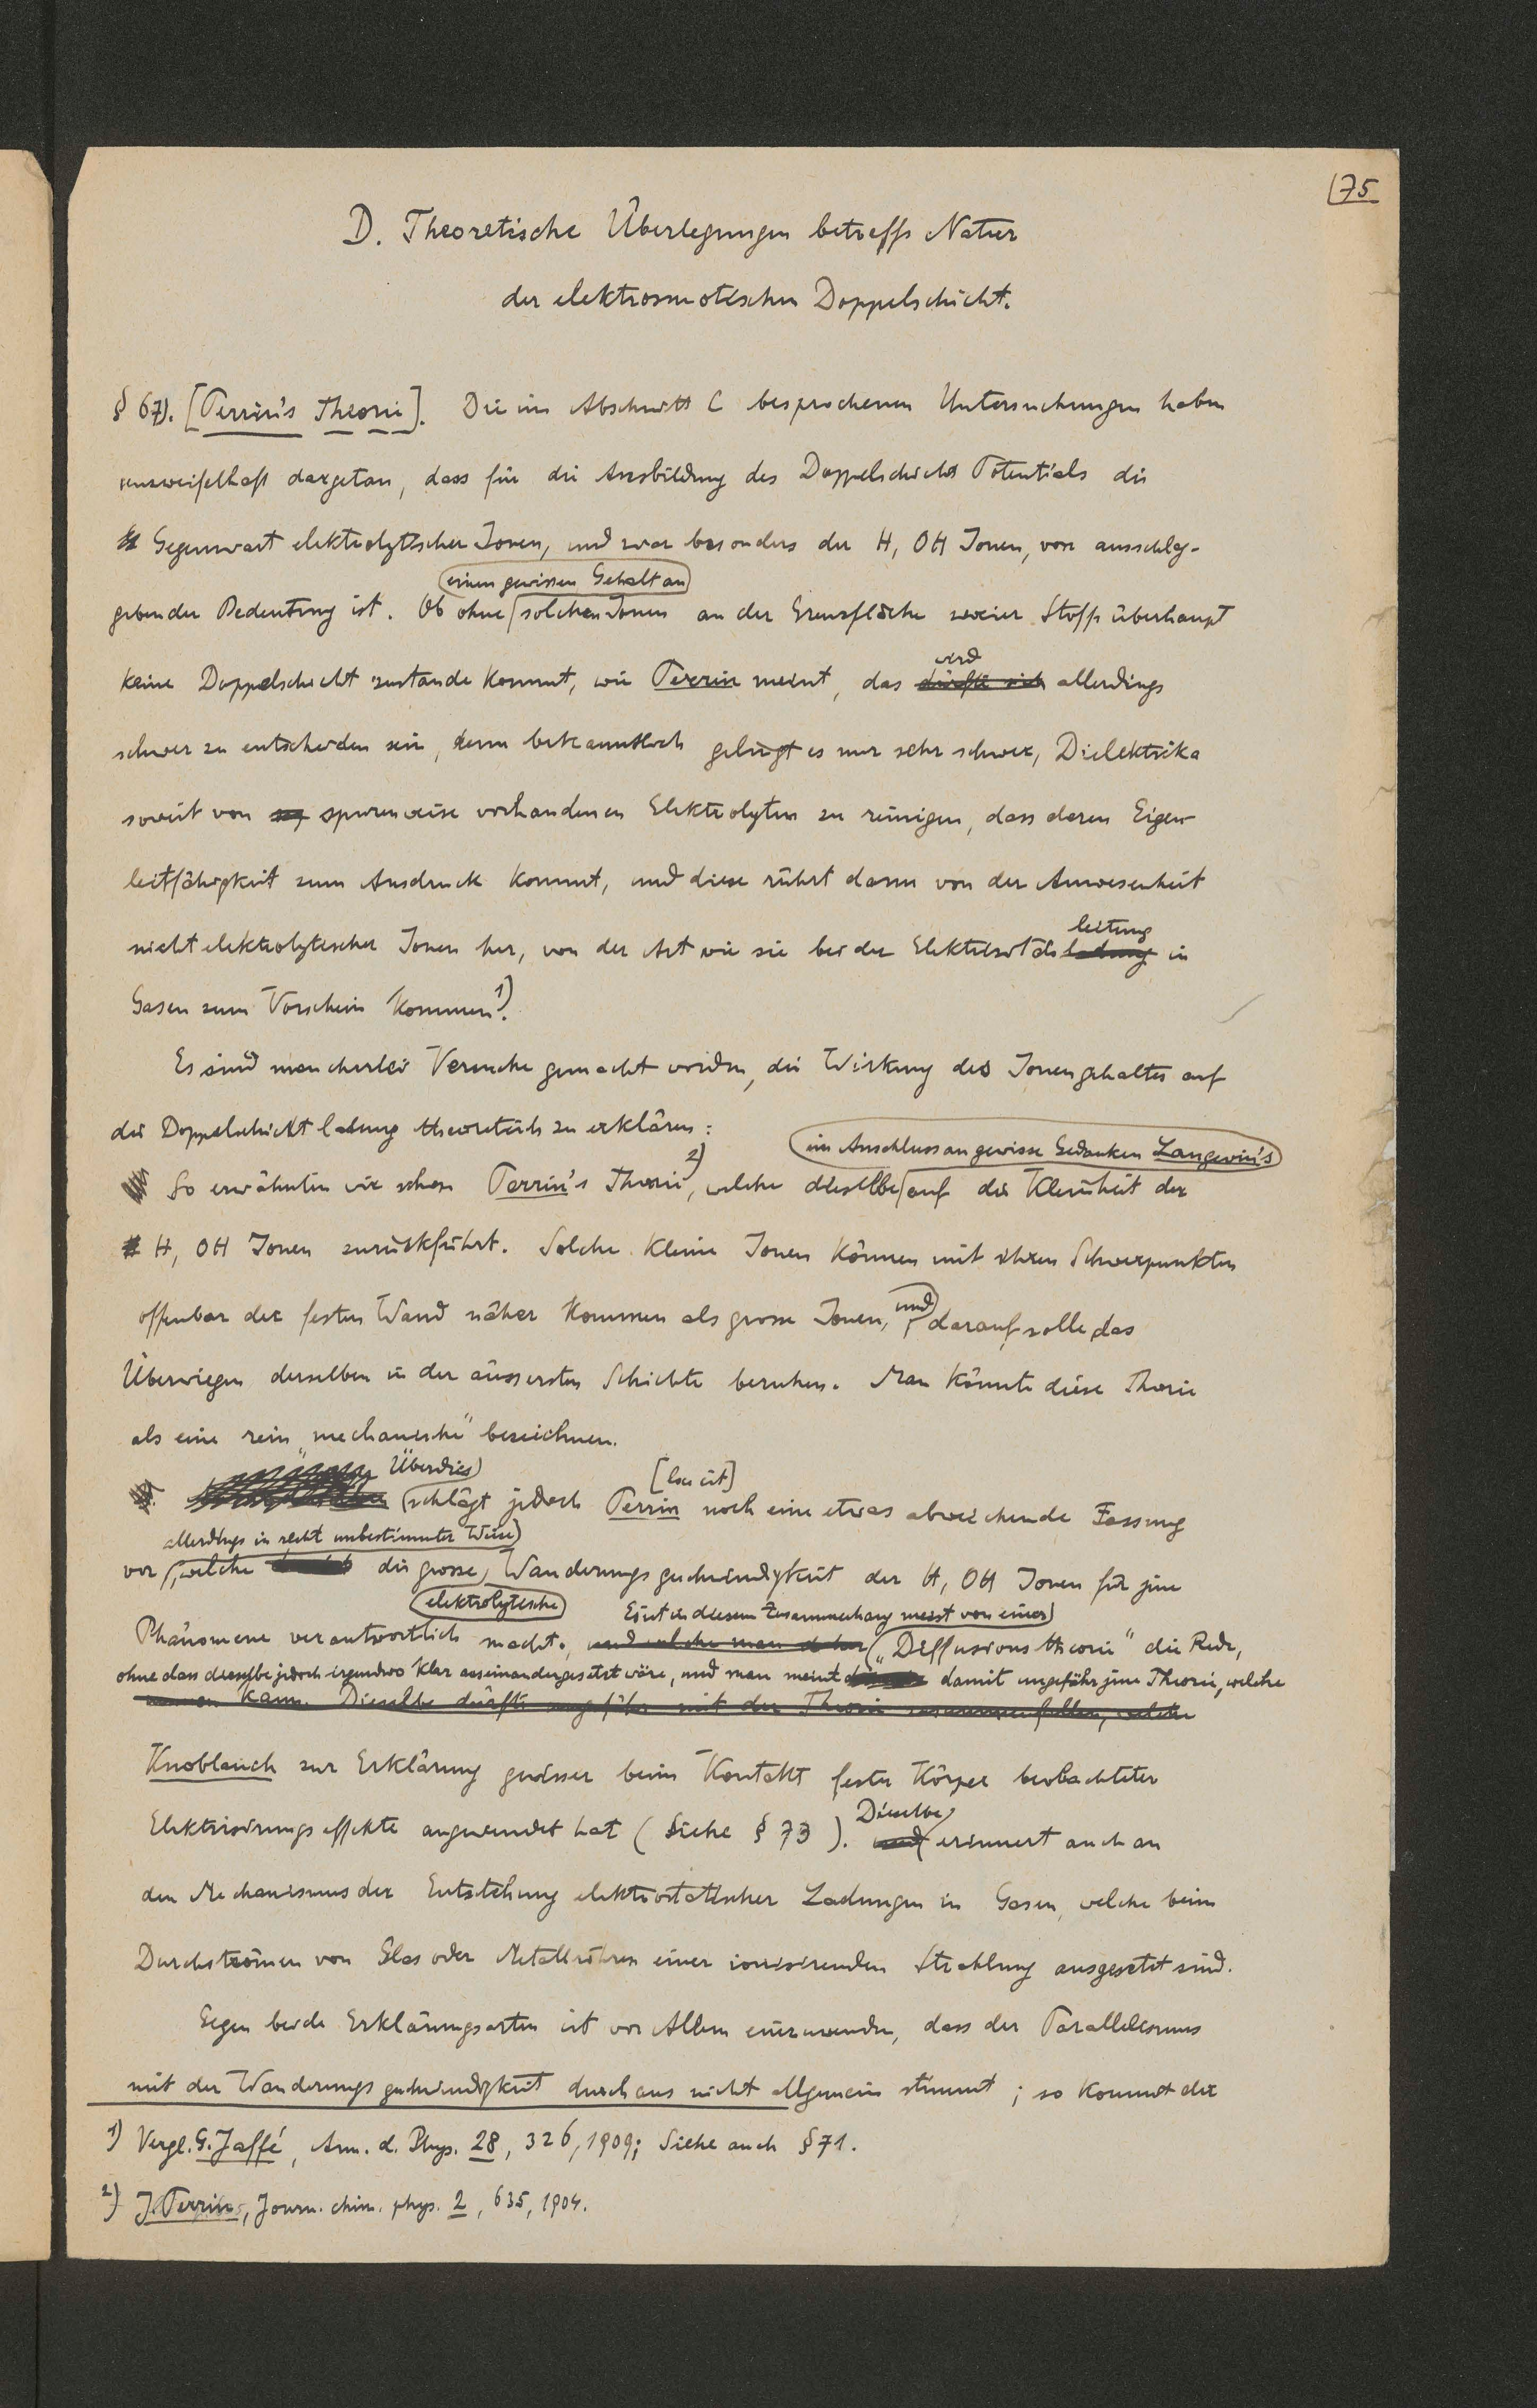 75
D. Theoretische Überlegungen betreffs Natur
der elektrosmotischen Doppelschicht.
§ 67). [Perrin's Theorie]. Die im Abschnitt C besprochenen Untersuchungen haben
unzweifelhaft dargetan, dass für die Ausbildung des Doppelschicht Potentials die
Gegenwart elektrolytischer Ionen, und zwar besonders der H, OH Ionen, von ausschlag-
einen gewissen Gehalt an
gebender Bedeutung ist. Ob ohne solchen Ionen an der Grenzfläche zweier Stoffe überhaupt
wird
keine Doppelschicht zustande kommt, wie Perrin meint, das dürfte sich allerdings
schwer zu entscheiden sein, denn bekanntlich gelingt es nur sehr schwer, Dielektrika
soweit von spurenweise vorhandenen Elektrolyten zu reinigen, dass deren Eigen-
leitfähigkeit zum Ausdruck kommt, und diese rührt dann von der Anwesenheit
leitung
nicht elektrolytischer Ionen her, von der Art wie sie bei der Elektrizitäts ladung in
Gasen zum Vorschein kommen 1).
Es sind mancherlei Versuche gemacht worden, die Wirkung des Ionengehaltes auf
die Doppelschicht ladung theoretisch zu erklären:
im Anschluss an gewisse Gedanken Langevin's
So erwähnten wir schon Perrin's Theorie 2), welche dieselbe auf die Kleinheit der
H, OH Ionen zurückführt. Solche kleine Ionen können mit ihren Schwerpunkten
und
offenbar der festen Wand näher kommen als grosse Ionen, darauf solle das
Überwiegen derselben in der äussersten Schichte beruhen. Man könnte diese Theorie
als eine rein „mechanische" bezeichnen.
Überdies [loc cit]
schlägt jedoch Perrin noch eine etwas abweichende Fassung
allerdings in recht unbestimmter Weise
vor, welche die grosse Wanderungsgeschwindigkeit der H, OH Ionen für jene
elektrolytische Es ist in diesem Zusammenhang meist von einer
Phänomene verantwortlich macht. und welche man daher „Diffusionstheorie" die Rede,
ohne dass dieselbe jedoch irgendwo klar auseinandergesetzt wäre, und man meint damit ungefähr jene Theorie, welche
kann. Dieselbe dürfte ungefähr mit der Theorie zusammenfallen, welche
Knoblauch zur Erklärung gewisser beim Kontakt fester Körper beobachteter
Dieselbe
Elektrisirungseffekte angewendet hat (Siehe § 73). und erinnert auch an
den Mechanismus der Entstehung elektrostatischer Ladungen in Gasen, welche beim
Durchströmen von Glas oder Metallröhren einer ionisirenden Strahlung ausgesetzt sind.
Gegen beide Erklärungsarten ist vor Allem einzuwenden, dass der Parallelismus
mit der Wanderungsgeschwindigkeit durchaus nicht allgemein stimmt; so kommt der
1) Vergl. G. Jaffé, Ann. d. Phys. 28, 326, 1909; Siehe auch § 71.
2) J. Perrin, Journ. chim. phys. 2, 635, 1904.